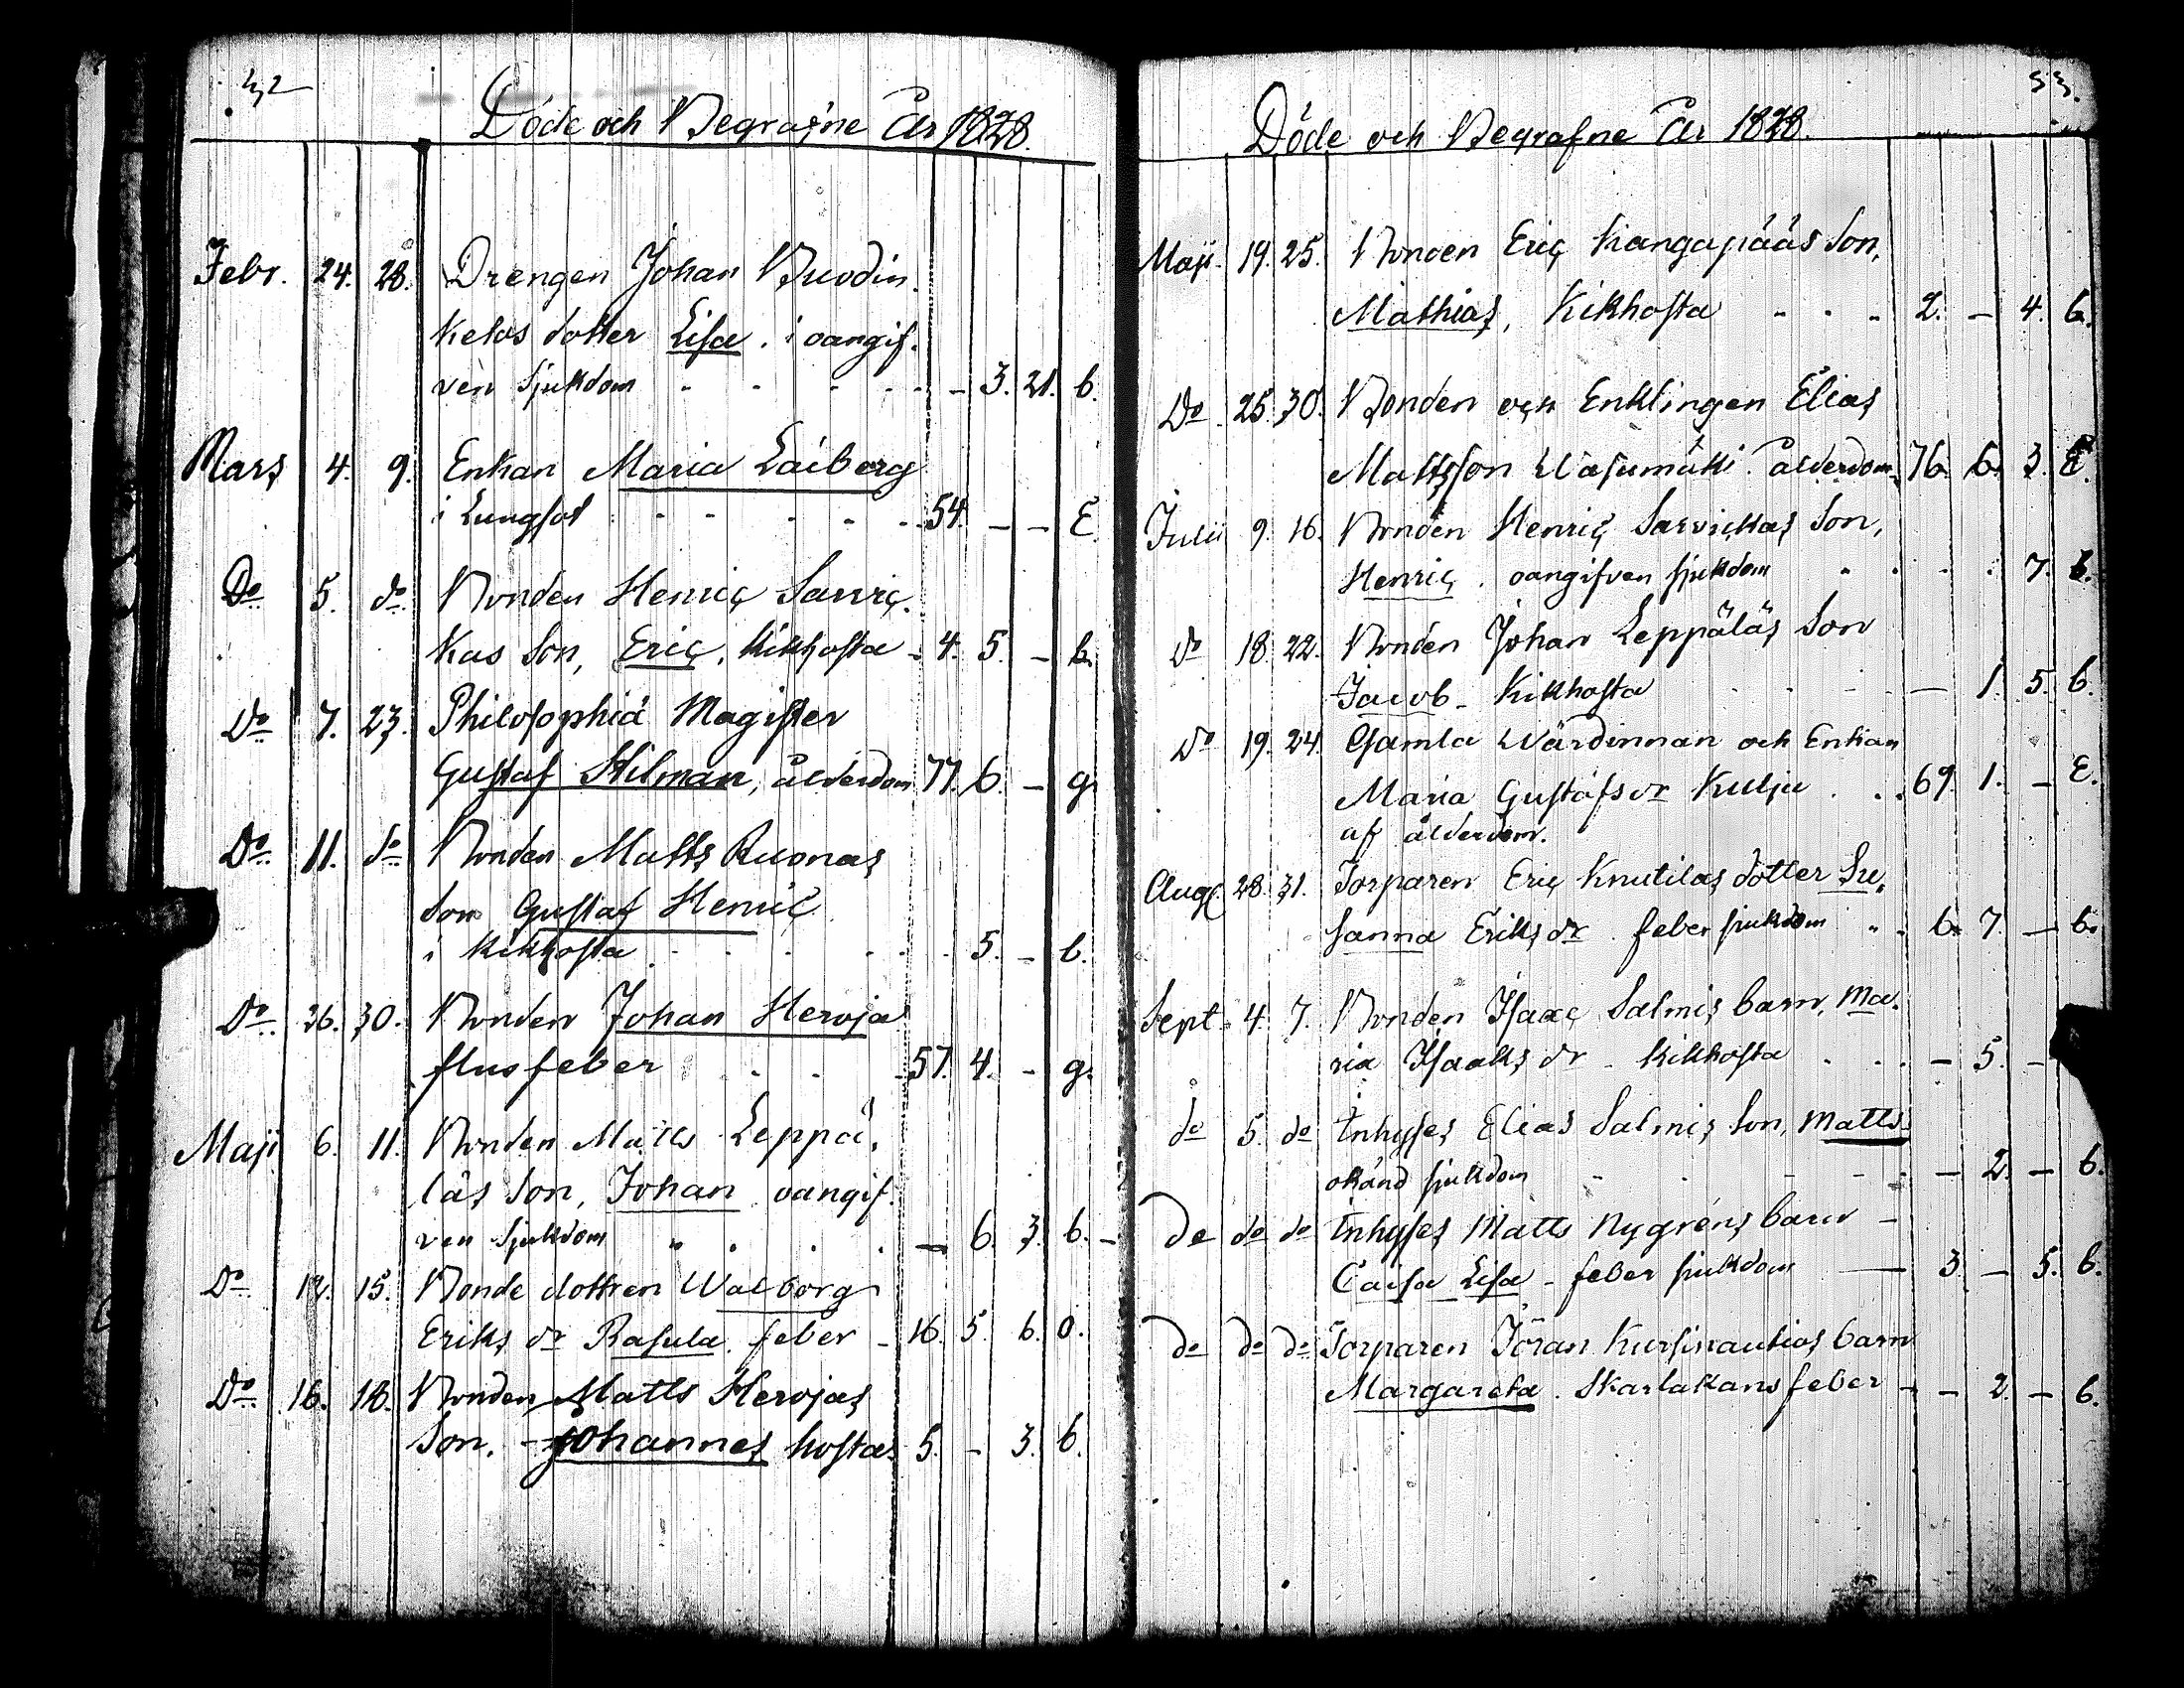 32
Döde och Begrafne År 1828.
Febr. 24. 28. Drengen Johan Buodin.
kelas dotter Lisa. i oangif.
ven sjukdom - - - - - 3. 21. b.
Mars 4. 9. Enkan Maria Laiberg
i Lungsot - - - - - 54. - - E.
Do 5. do Bonden Henric Sarvic.
kas Son, Eric, Kikhosta - 4. 5. - b.
Do 7. 23. Philosophiä Magister
Gustaf Hilman, ålderdom 77. 6. - g.
Do 11. do Bonden Matts Ruonas
Son Gustaf Henric
i Kikhosta - - - - 5. - b.
Do 26. 30. Bonden Johan Hervja
flusfeber - - - 57. 4. - g.
Maji 6. 11. Bonden Matts Leppä.
läs Son, Johan oangif.
ven sjukdom " . . . - 6. 3. b.
Do 12. 15. Bonde dottren Walborg
Eriks dr Rasula. feber - 16. 5. 6. o.
Do 16. 18. Bonden Matts Hervjas
Son. Johannes hosta. 5. - 3. b.
33.
Döde och Begrafne År 1828.
Maji. 19. 25. Bonden Eric Kangapääs Son,
Mathias, Kikhosta - - - 2. - 4. b.
Do 25. 30. Bonden och Enklingen Elias
Mattsson Wasumäki. ålderdom 76. 6. 3. E.
Julii 9. 16. Bonden Henric Sarvickas Son,
Henric. oangifven sjukdom " . . . 7. b.
Do 18. 22. Bonden Johan Leppäläs Son
Jacob - Kikhosta - - - - 1. 5. b.
Do 19. 24. Gamla Wärdinnan och Enkan
Maria Gustafsdr Kulju . . . 69. 1. - E.
af ålderdom.
Aug. 28. 31. Torparen Eric Knutilas dotter Su,
sanna Eriks dr feber sjukdom " - 6. 7. - b.
Sept. 4. 7. Bonden Isaac Salmis barn, Ma.
ria Isaaks dr - Kikhosta . . . - 5. -
do 5. do Inhyses Elias Salmis Son, Matts
okänd sjukdom - - - - - 2. - b.
do do do Inhyses Matts Nygréns barn -
Caisa Lisa - feber sjukdom - 3 - 5. b.
do do do Torparen Jöran barn
Margareta. Skarlakansfeber - - 2. - b.